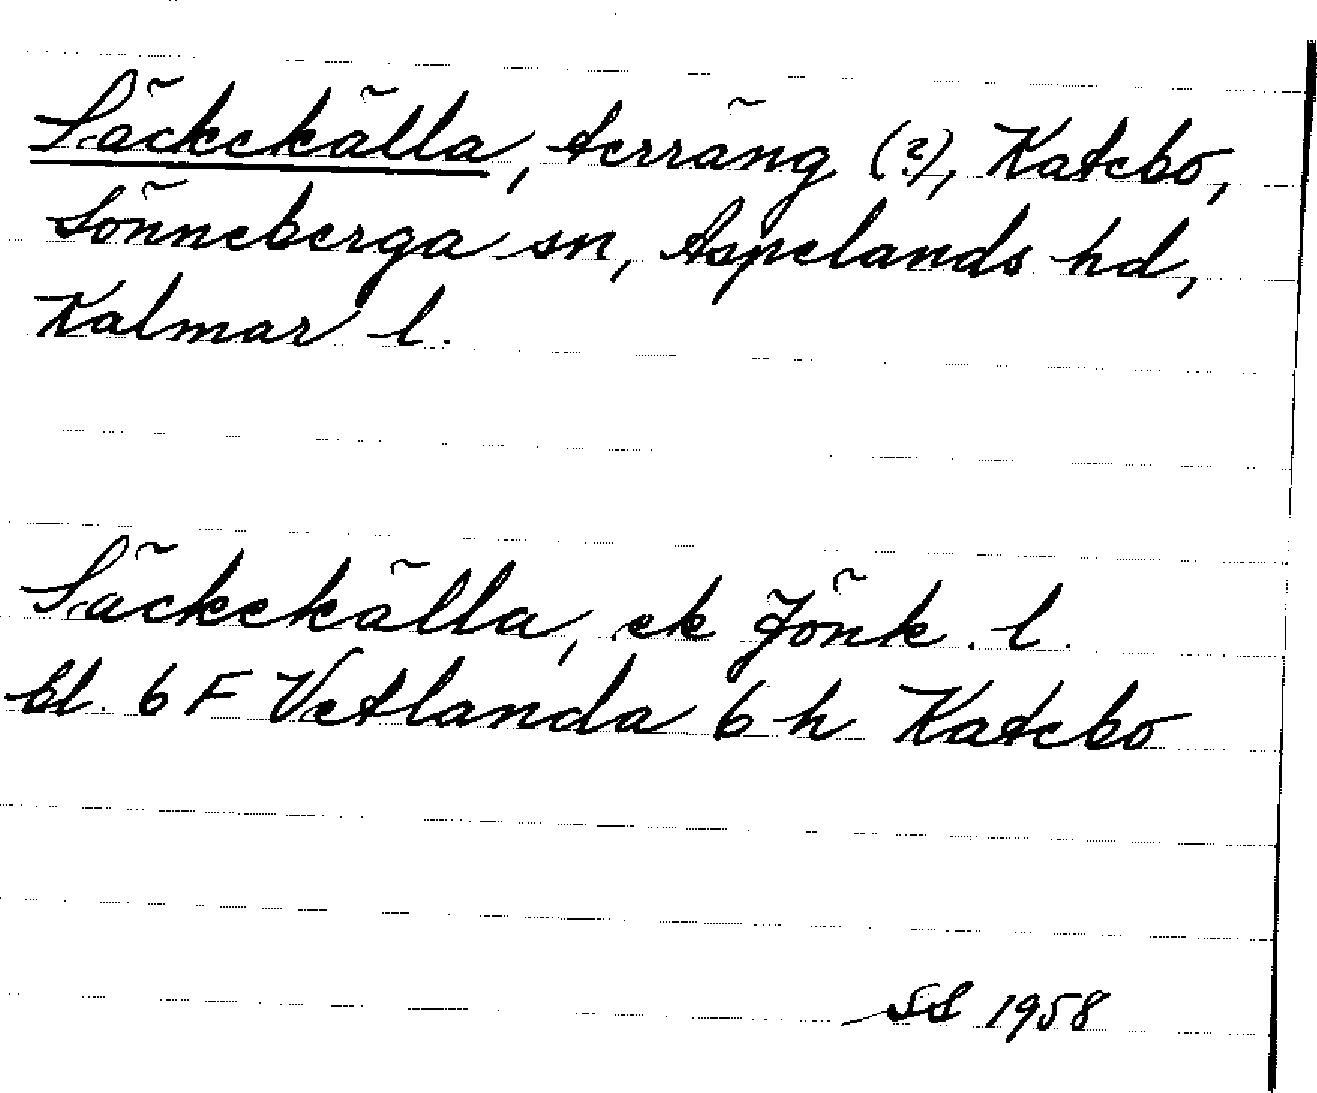 Säckekälla, terräng (?), Katebo,
Lönneberga sn, Aspelands hd,
Kalmar l.
Säckekälla, ek Jönk. l.
Bl. 6 F Vetlanda 6 h Katebo
SS 1958